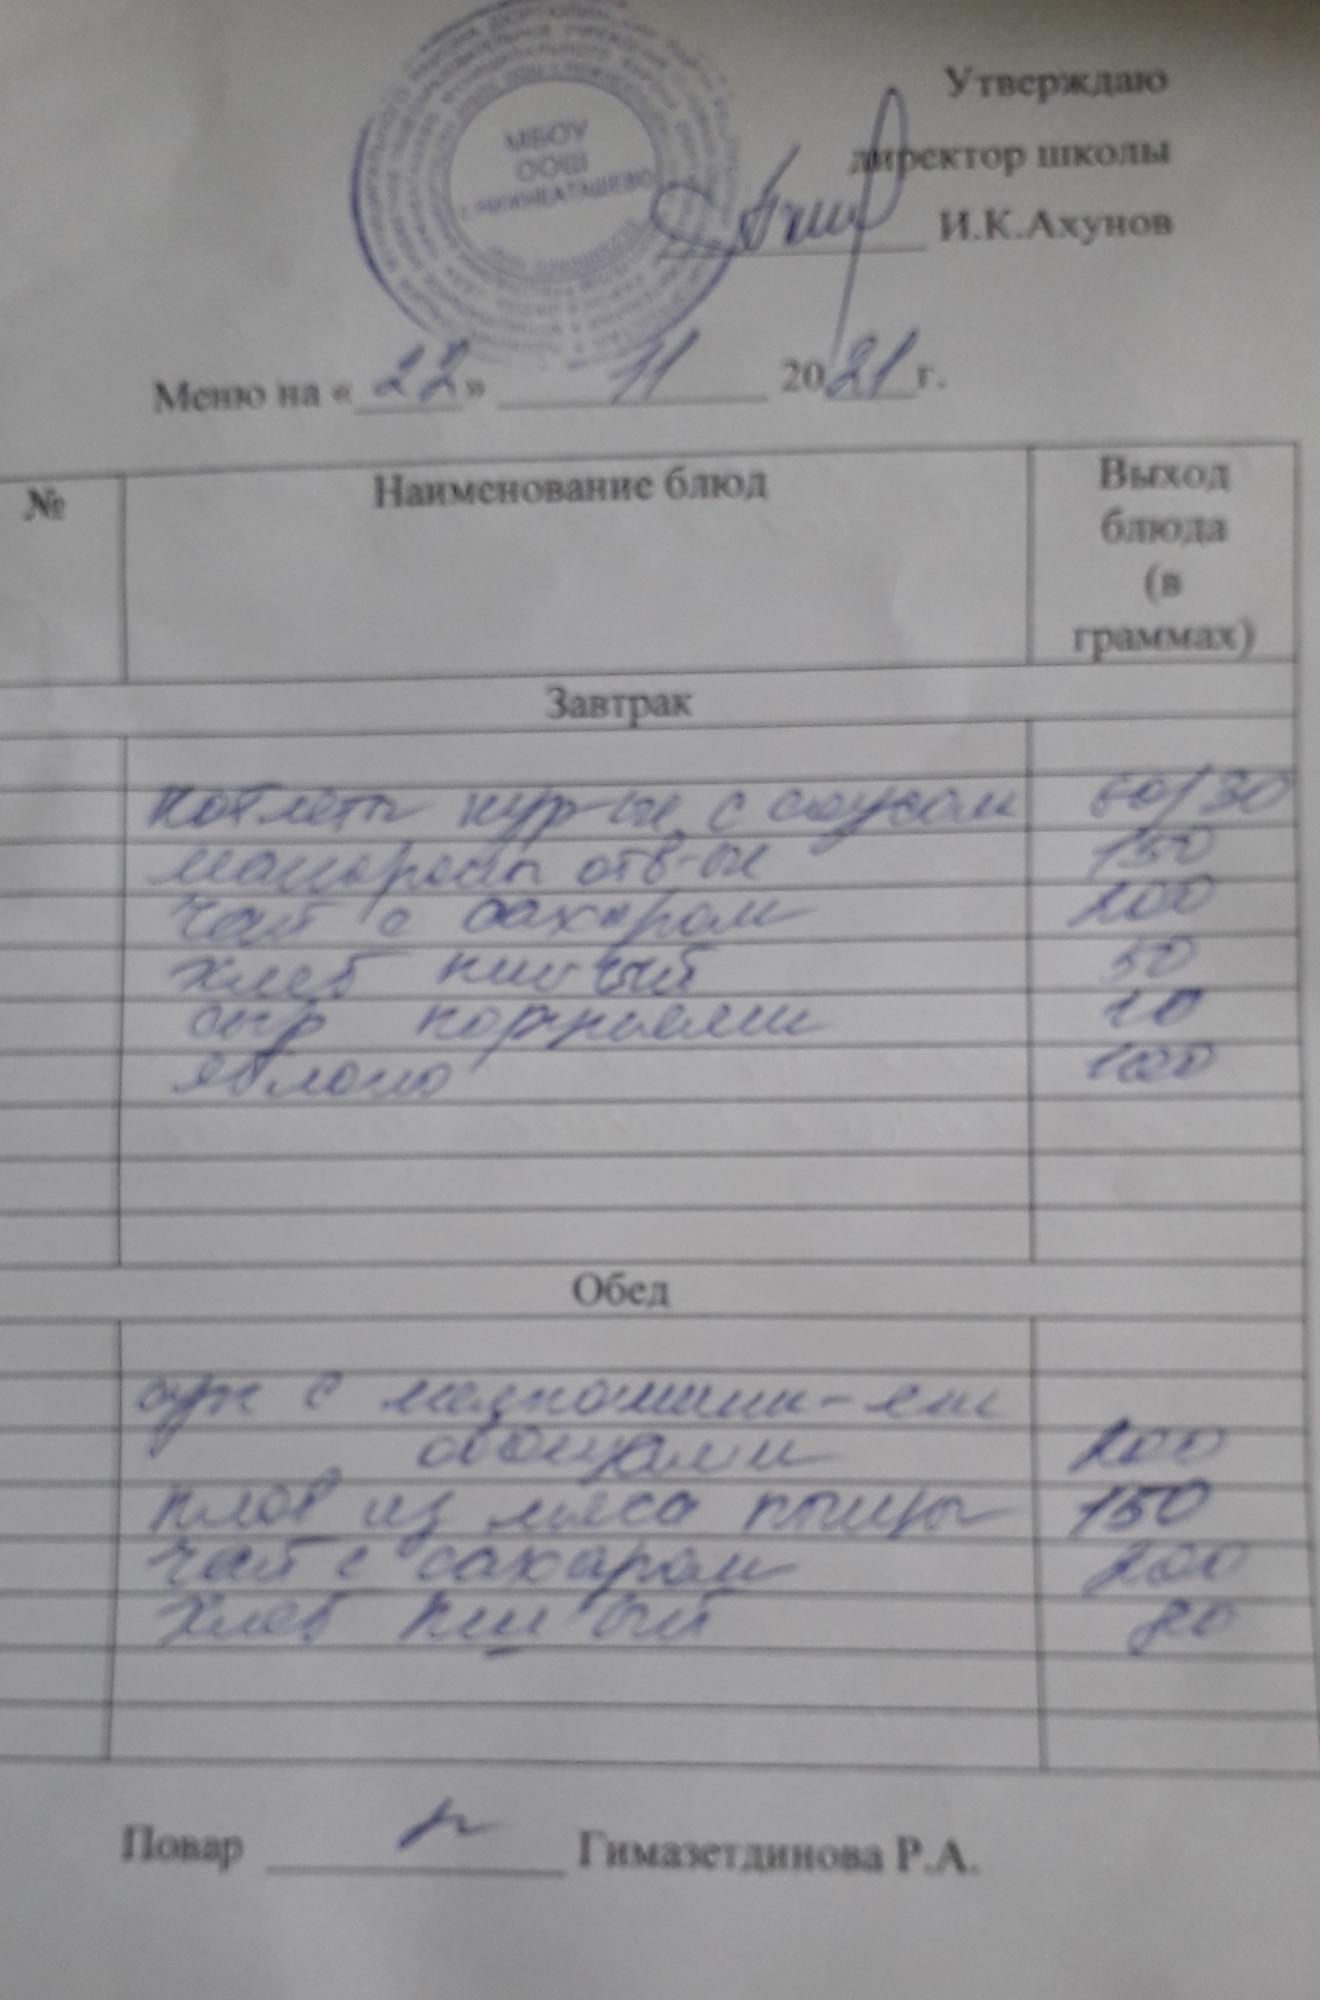 МБОУ
ООШ
с.НИЖНЕАТАШЕВО
Утверждаю
директор школы
И.К.Ахунов
Меню на «22» 11 2021 г.
№ Наименование блюд Выход
блюда
(в
граммах)
Завтрак
котлеты кур-ые с соусом 60/30
макароны отв-ые 150
чай с сахаром 200
хлеб пш-ый 50
сыр порциями 10
яблоко 100
Обед
суп с мелкошин-ми
овощами 200
плов из мяса птицы 150
чай с сахаром 200
хлеб пш-ый 80
Повар Гимазетдинова Р.А.